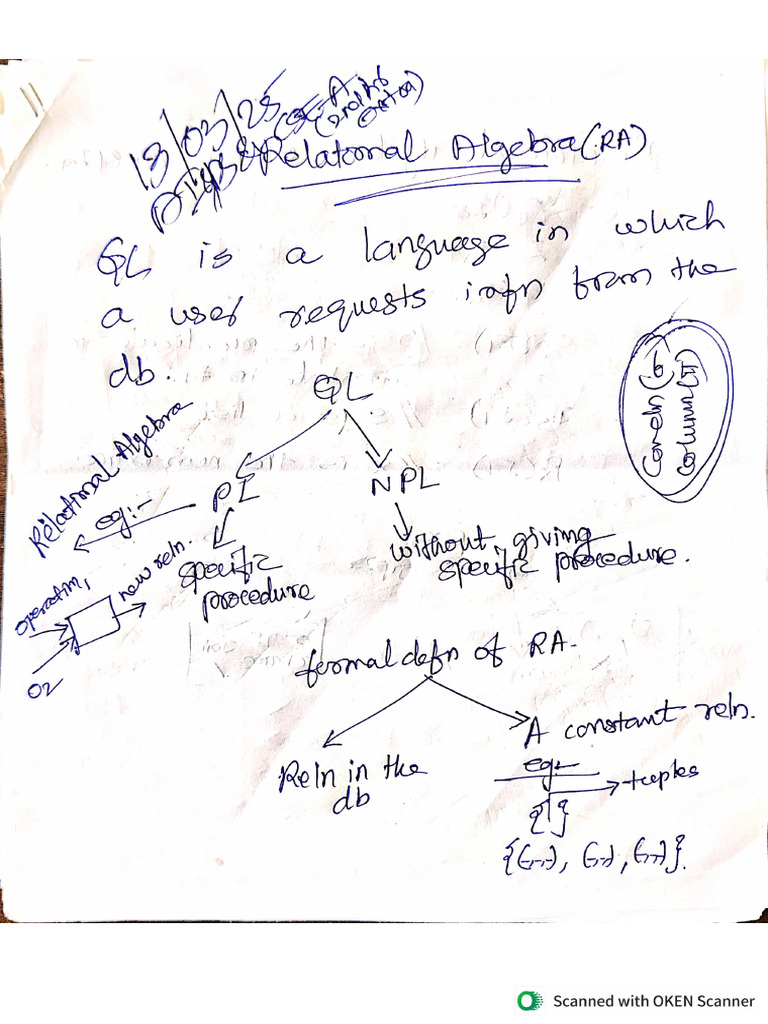 13/03/25
Relational Algebra (RA)
QL is a language in which
a user requests infn from the
db.
QL
PL
NPL
Relational Algebra
eg:-
specific
procedure
without giving
specific procedure.
operation,
new reln.
O2
column(π)
formal defn of RA.
Reln in the
db
A constant reln.
eg:-
tuples
{ }
{(-,-), (-,-), (-,-)}.
Scanned with OKEN Scanner